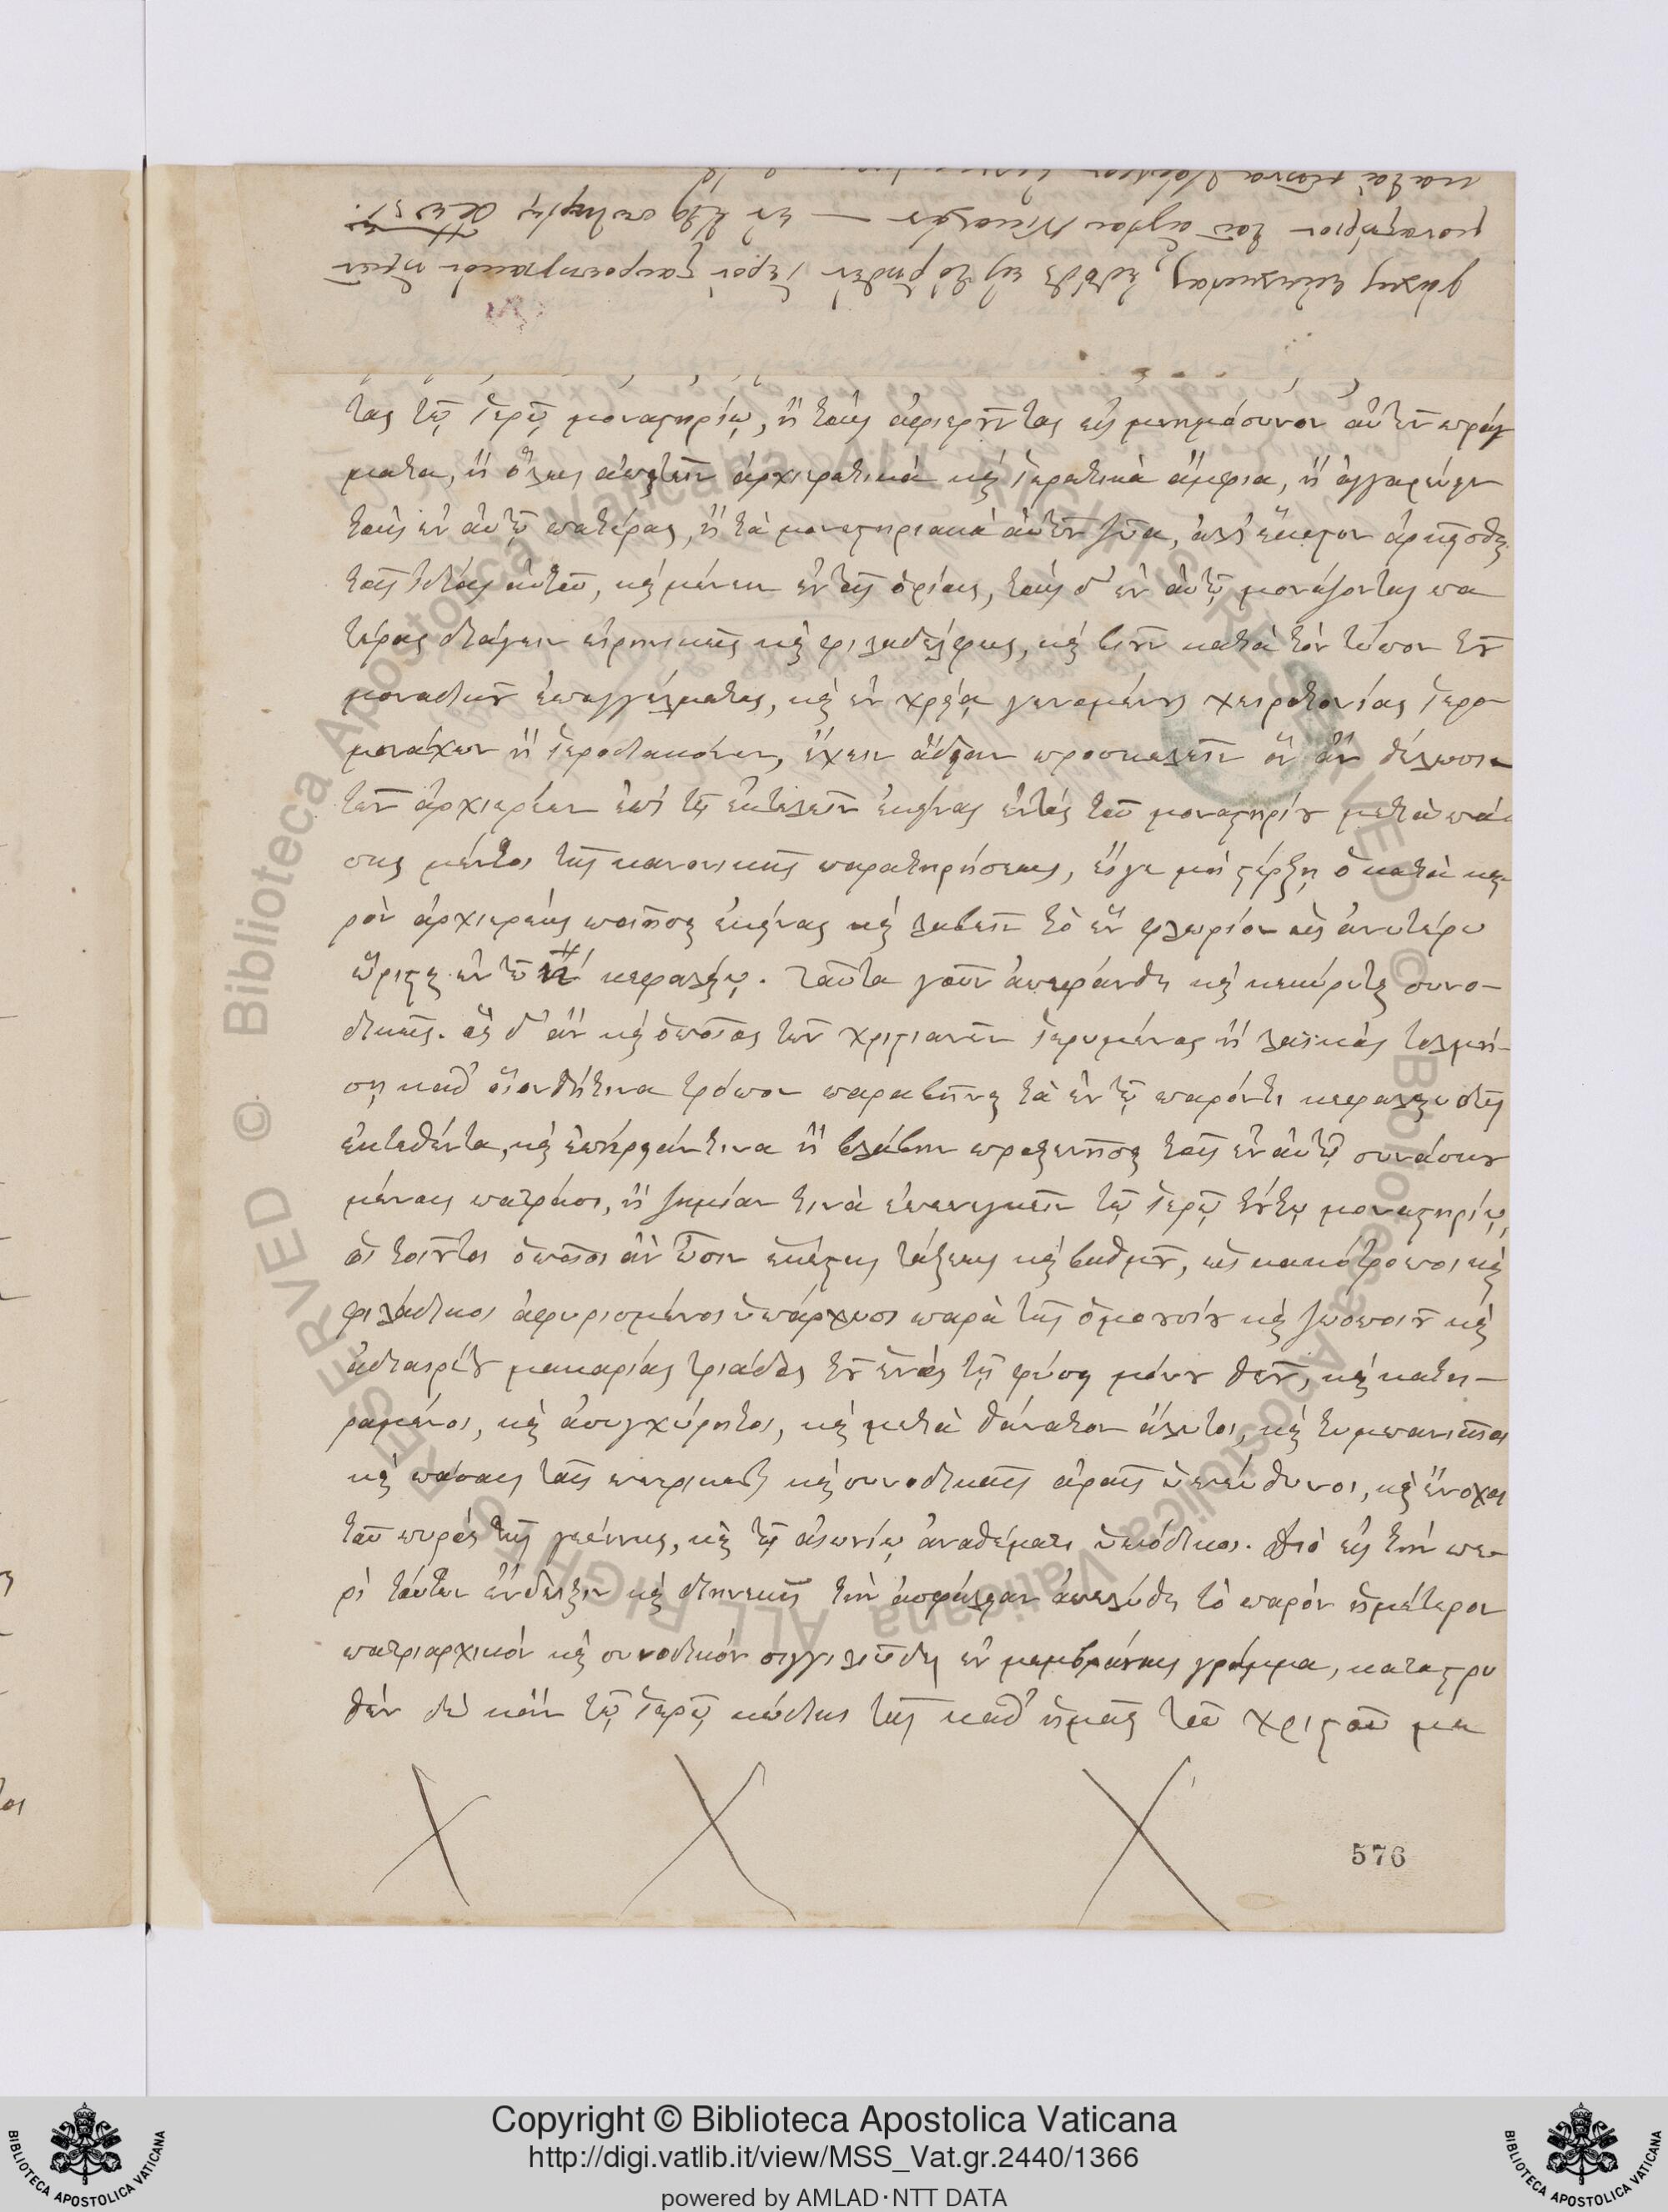 μοναστήριον τοῦ ἁγίου Νικολάου — ἐν ἔτει σωτηρίῳ
τας τῷ ἱερῷ μοναστηρίῳ, ἢ τοὺς ἀφιεροῦντας εἰς μνημόσυνον αὐτῶν πράγ
ματα, ἢ ὅλως ἀπαιτεῖν ἀρχιερατικὰ καὶ ἱερατικὰ ἄμφια, ἢ ἀγγαρεύειν
τοὺς ἐν αὐτῷ πατέρας, ἢ τὰ μοναστηριακὰ αὐτῶν ζῶα, ἀλλ' ἕκαστον ἀρκεῖσθαι
τοῖς ἰδίοις αὐτοῦ, καὶ μένειν ἐν τοῖς ὁρίοις, τοὺς δ' ἐν αὐτῷ μονάζοντας πα
τέρας διάγειν εἰρηνικῶς καὶ φιλαδέλφως, καὶ βιοῦν κατὰ τὸν τύπον τοῦ
μοναδικοῦ ἐπαγγέλματος, καὶ ἐν χρείᾳ γενομένης χειροτονίας ἱερο-
μονάχων ἢ ἱεροδιακόνων, ἔχειν ἄδειαν προσκαλεῖν ὃν ἂν θέλωσι
τῶν ἀρχιερέων ἐπὶ τῷ ἐκτελεῖν ἐκείνας ἐντὸς τοῦ μοναστηρίου μετὰ πά
σης μέντοι τῆς κανονικῆς παρατηρήσεως, εἴγε μὴ στέρξῃ ὁ κατὰ και
ρὸν ἀρχιερεὺς ποιῆσαι ἐκείνας καὶ λαβεῖν τὸ ἓν φλωρίον ὡς ἀνωτέρω
ὥρισται ἐν τῷ κεφαλαίῳ. Ταῦτα γοῦν ἀπεφάνθη καὶ κεκύρωται συνο-
δικῶς. ὃς δ' ἂν καὶ ὁποῖος τῶν χριστιανῶν ἱερωμένος ἢ λαϊκὸς τολμή-
σῃ καθ' οἱονδήτινα τρόπον παραβῆναι τὰ ἐν τῷ παρόντι κεφαλαιωδῶς
ἐκτεθέντα, καὶ ἐπήρειάν τινα ἢ βλάβην προξενῆσαι τοῖς ἐν αὐτῷ συνασκου
μένοις πατράσι, ἢ ζημίαν τινὰ ἐπενεγκεῖν τῷ ἱερῷ τούτῳ μοναστηρίῳ,
οἱ τοιοῦτοι ὁποῖοι ἂν ὦσιν ἑκάστης τάξεως καὶ βαθμοῦ, ὡς κακότροποι καὶ
φιλάδικοι ἀφωρισμένοι ὑπάρχωσι παρὰ τῆς ὁμοουσίου καὶ ζωοποιοῦ καὶ
ἀδιαιρέτου μακαρίας τριάδος τοῦ ἑνὸς τῇ φύσει μόνου θεοῦ, καὶ κατη-
ραμένοι, καὶ ἀσυγχώρητοι, καὶ μετὰ θάνατον ἄλυτοι, καὶ τυμπανιαῖοι
καὶ πάσαις ταῖς πατρικαῖς καὶ συνοδικαῖς ἀραῖς ὑπεύθυνοι, καὶ ἔνοχοι
τοῦ πυρὸς τῆς γεέννης, καὶ τῷ αἰωνίῳ ἀναθέματι ὑπόδικοι. Διὸ εἰς τὴν πε-
ρὶ τούτων ἔνδειξιν καὶ διηνεκῆ τὴν ἀσφάλειαν ἀπελύθη τὸ παρὸν ἡμέτερον
πατριαρχικὸν καὶ συνοδικὸν σιγγιλιῶδες ἐν μεμβράναις γράμμα, καταστρω
θὲν δὴ κἀν τῷ ἱερῷ κώδικι τῆς καθ' ἡμᾶς τοῦ Χριστοῦ με
576
© Biblioteca Apostolica Vaticana ALL RIGHTS RESERVED
Copyright © Biblioteca Apostolica Vaticana
http://digi.vatlib.it/view/MSS_Vat.gr.2440/1366
powered by AMLAD·NTT DATA
BIBLIOTECA APOSTOLICA VATICANA
BIBLIOTECA APOSTOLICA VATICANA